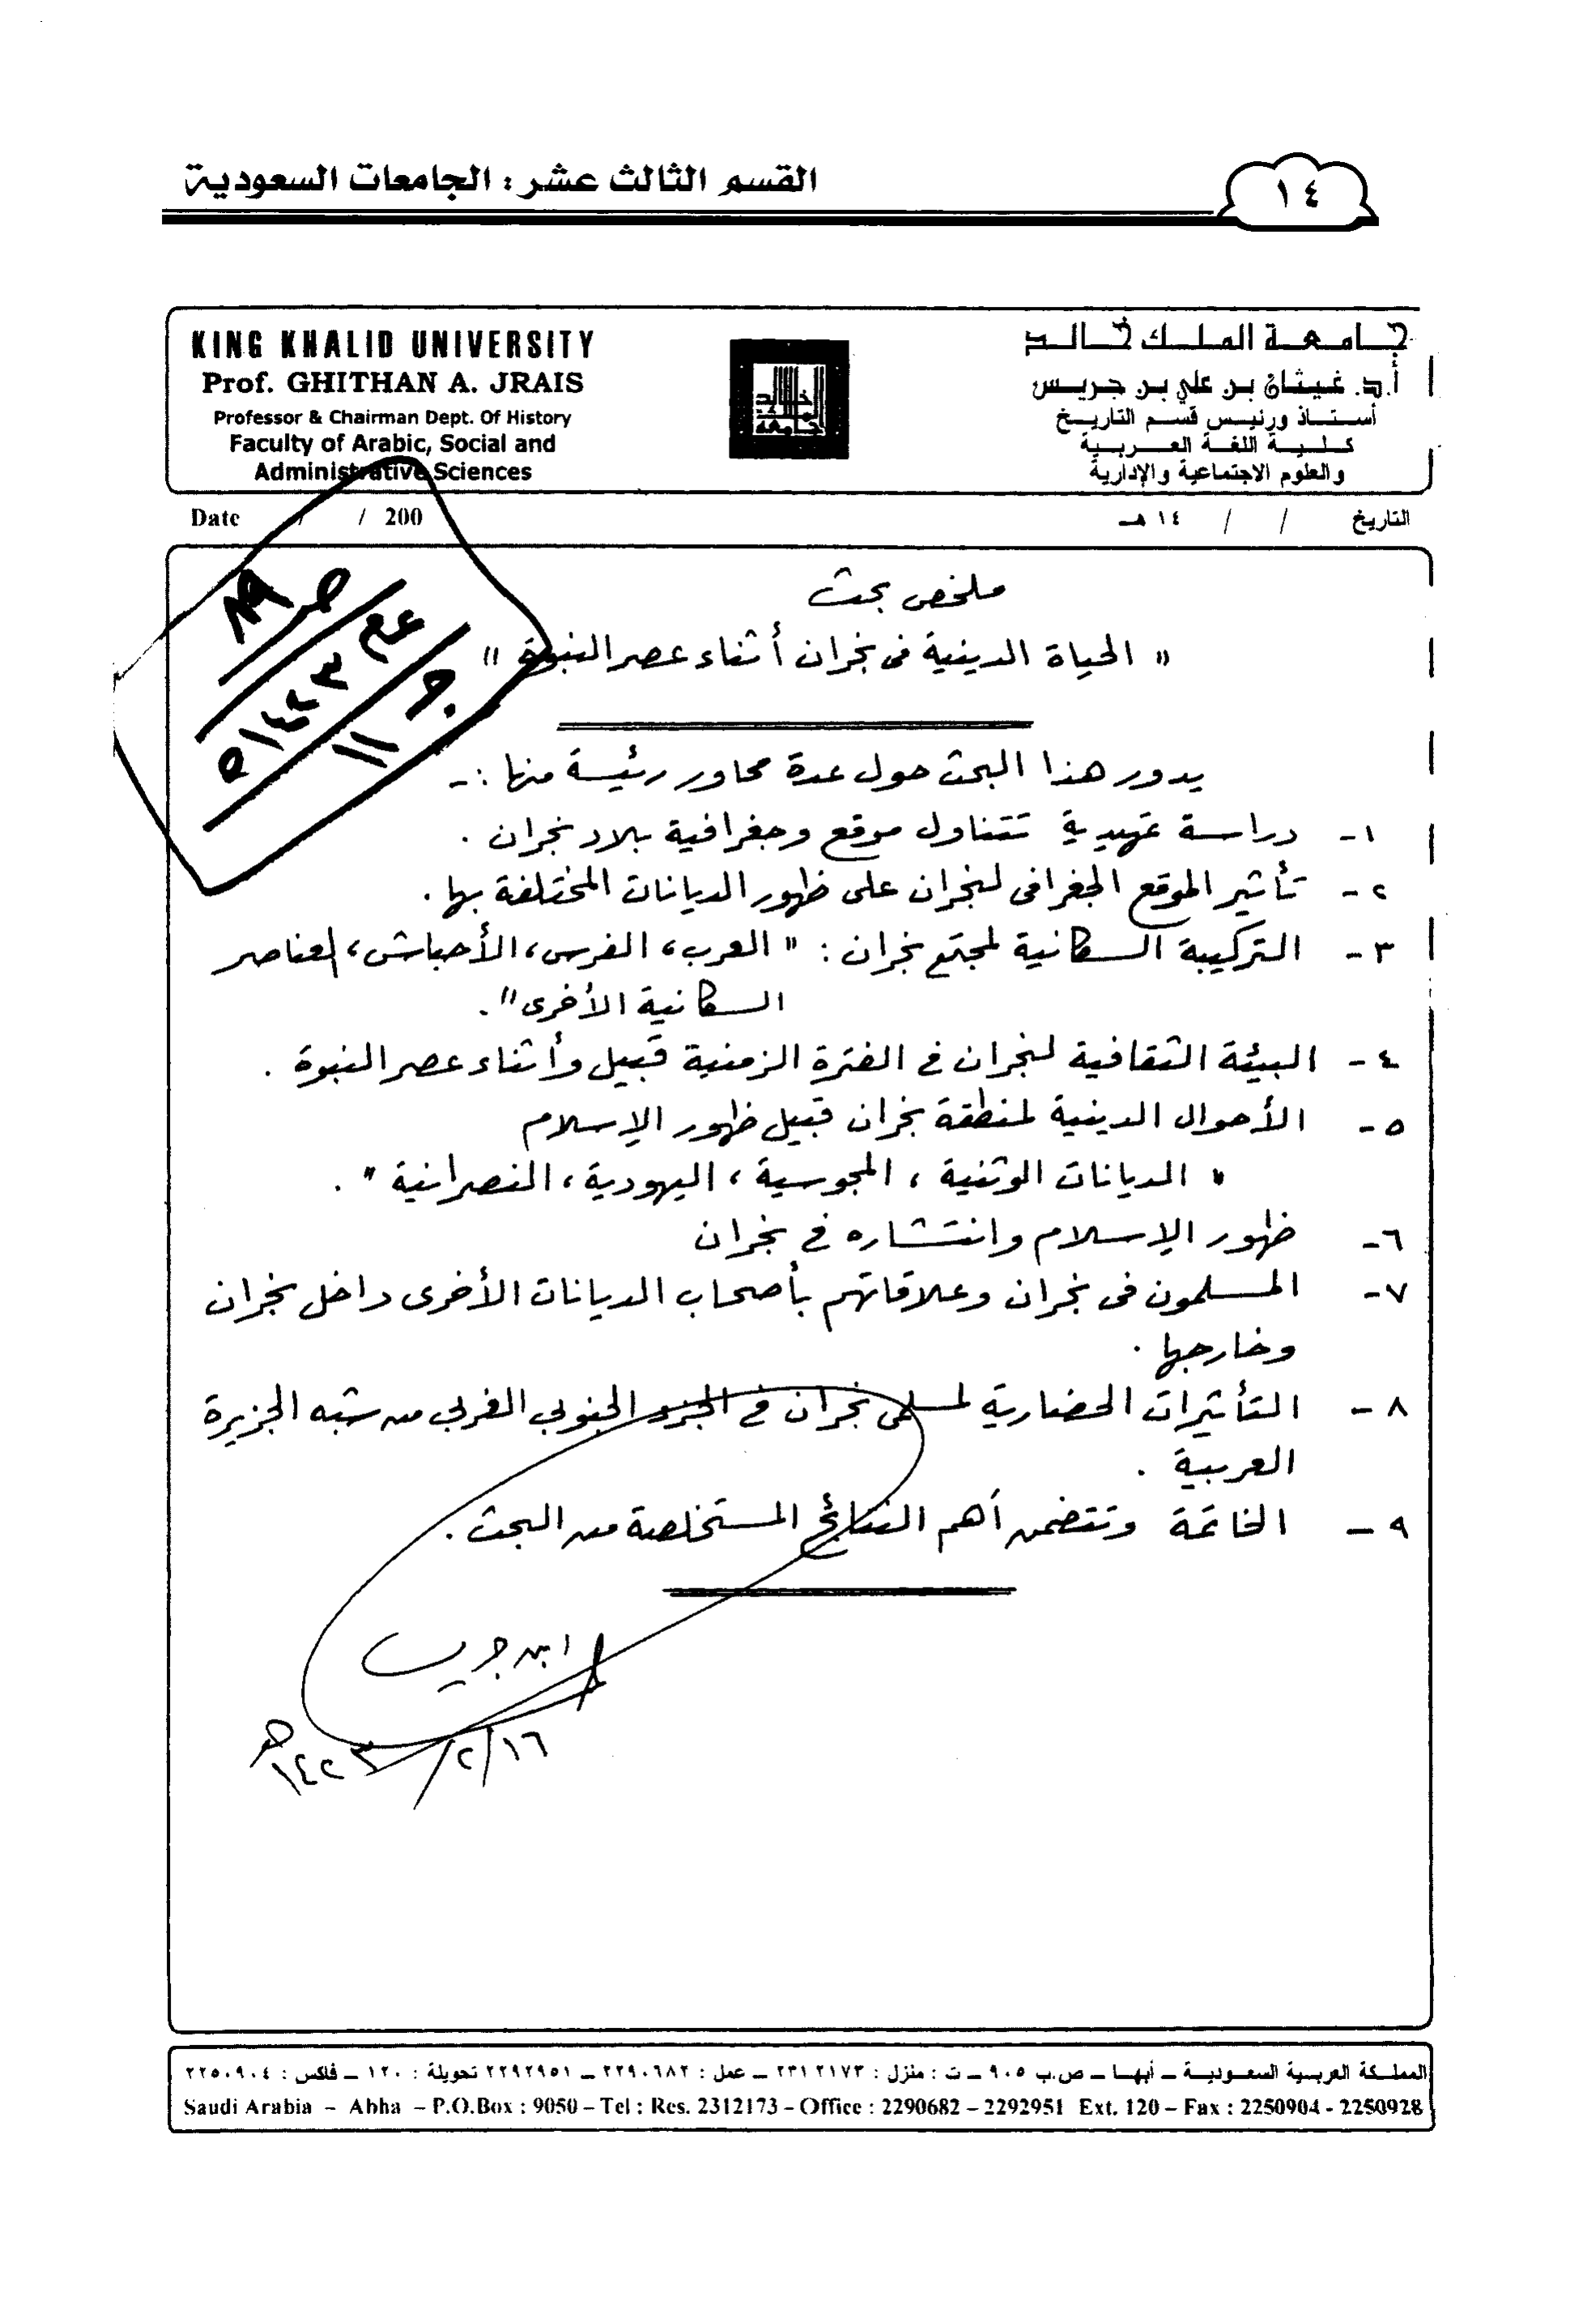 ١٤
القسم الثالث عشر : الجامعات السعودية
KING KHALID UNIVERSITY
Prof. GHITHAN A. JRAIS
Professor & Chairman Dept. Of History
Faculty of Arabic, Social and
Administrative Sciences
جامعة الملك خالد
أ.د. غيثان بن علي بن جريس
أستاذ ورئيس قسم التاريخ
كلية اللغة العربية
والعلوم الاجتماعية والإدارية
خالد
الملك
جامعة
Date / / 200
التاريخ / / ١٤هـ
ص ٨٩
١٤٢٣هـ
ج ١١
ملخص بحث
" الحياة الدينية فى نجران أثناء عصر النبوة "
يدور هذا البحث حول عدة محاور رئيسة منها :-
١- دراسة تمهيدية تتناول موقع وجغرافية بلاد نجران .
٢- تأثير الموقع الجغرافى لنجران على ظهور الديانات المختلفة بها .
٣- التركيبة السكانية لمجتمع نجران : " العرب، الفرس، الأحباش، العناصر
السكانية الأخرى ".
٤- البيئة الثقافية لنجران في الفترة الزمنية قبيل وأثناء عصر النبوة .
٥- الأحوال الدينية لمنطقة نجران قبيل ظهور الإسلام
" الديانات الوثنية ، المجوسية ، اليهودية ، النصرانية " .
٦- ظهور الإسلام وانتشاره في نجران
٧- المسلمون فى نجران وعلاقاتهم بأصحاب الديانات الأخرى داخل نجران
وخارجها .
٨- التأثيرات الحضارية لمسلمى نجران في الجزء الجنوبي الغربي من شبه الجزيرة
العربية .
٩- الخاتمة وتتضمن أهم النتائج المستخلصة من البحث .
ابن جريس
١٦/٢/١٤٢٣هـ
المملكة العربية السعودية – أبها – ص.ب ٩٠٥ – ت : منزل : ٢٣١٢١٧٣ – عمل : ٢٢٩٠٦٨٢ – ٢٢٩٢٩٥١ تحويلة : ١٢٠ – فاكس : ٢٢٥٠٩٠٤
Saudi Arabia – Abha – P.O.Box : 9050 – Tel : Res. 2312173 – Office : 2290682 – 2292951 Ext. 120 – Fax : 2250904 - 2250928